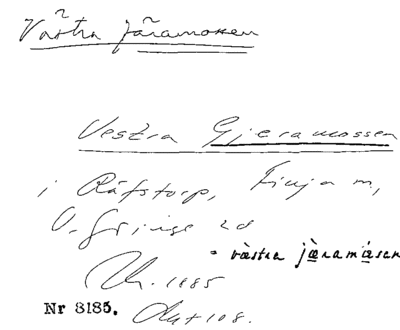 Västra Järamossen
Vestra Gjeramossen
i Räfstorp, Finja m,
V. Göinge hd
= västra jæramåsen
1885
Nr 8185.